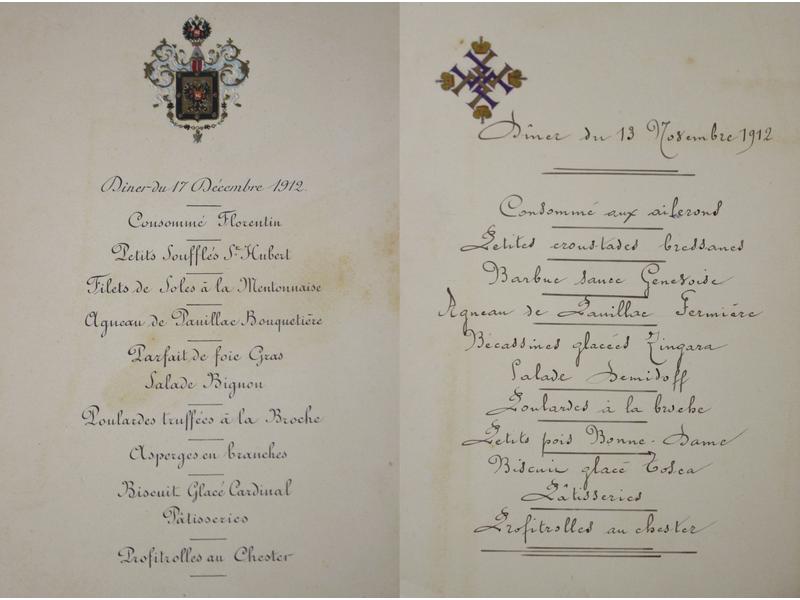 Dîner du 17 Décembre 1912.
Consommé Florentin
Petits Soufflés St Hubert
Filets de Soles à la Mentonnaise
Agneau de Pauillac Bouquetière
Parfait de foie Gras
Salade Bignon
Poulardes truffées à la Broche
Asperges en branches
Biscuit Glacé Cardinal
Pâtisseries
Profitrolles au Chester
Dîner du 13 Novembre 1912
Consommé aux ailerons
Petites croustades bressanes
Barbue sauce Genevoise
Agneau de Pauillac Fermière
Bécassines glacées Zingara
Salade Demidoff
Poulardes à la broche
Petits pois Bonne-Dame
Biscuit glacé Tosca
Pâtisseries
Profitrolles au chester